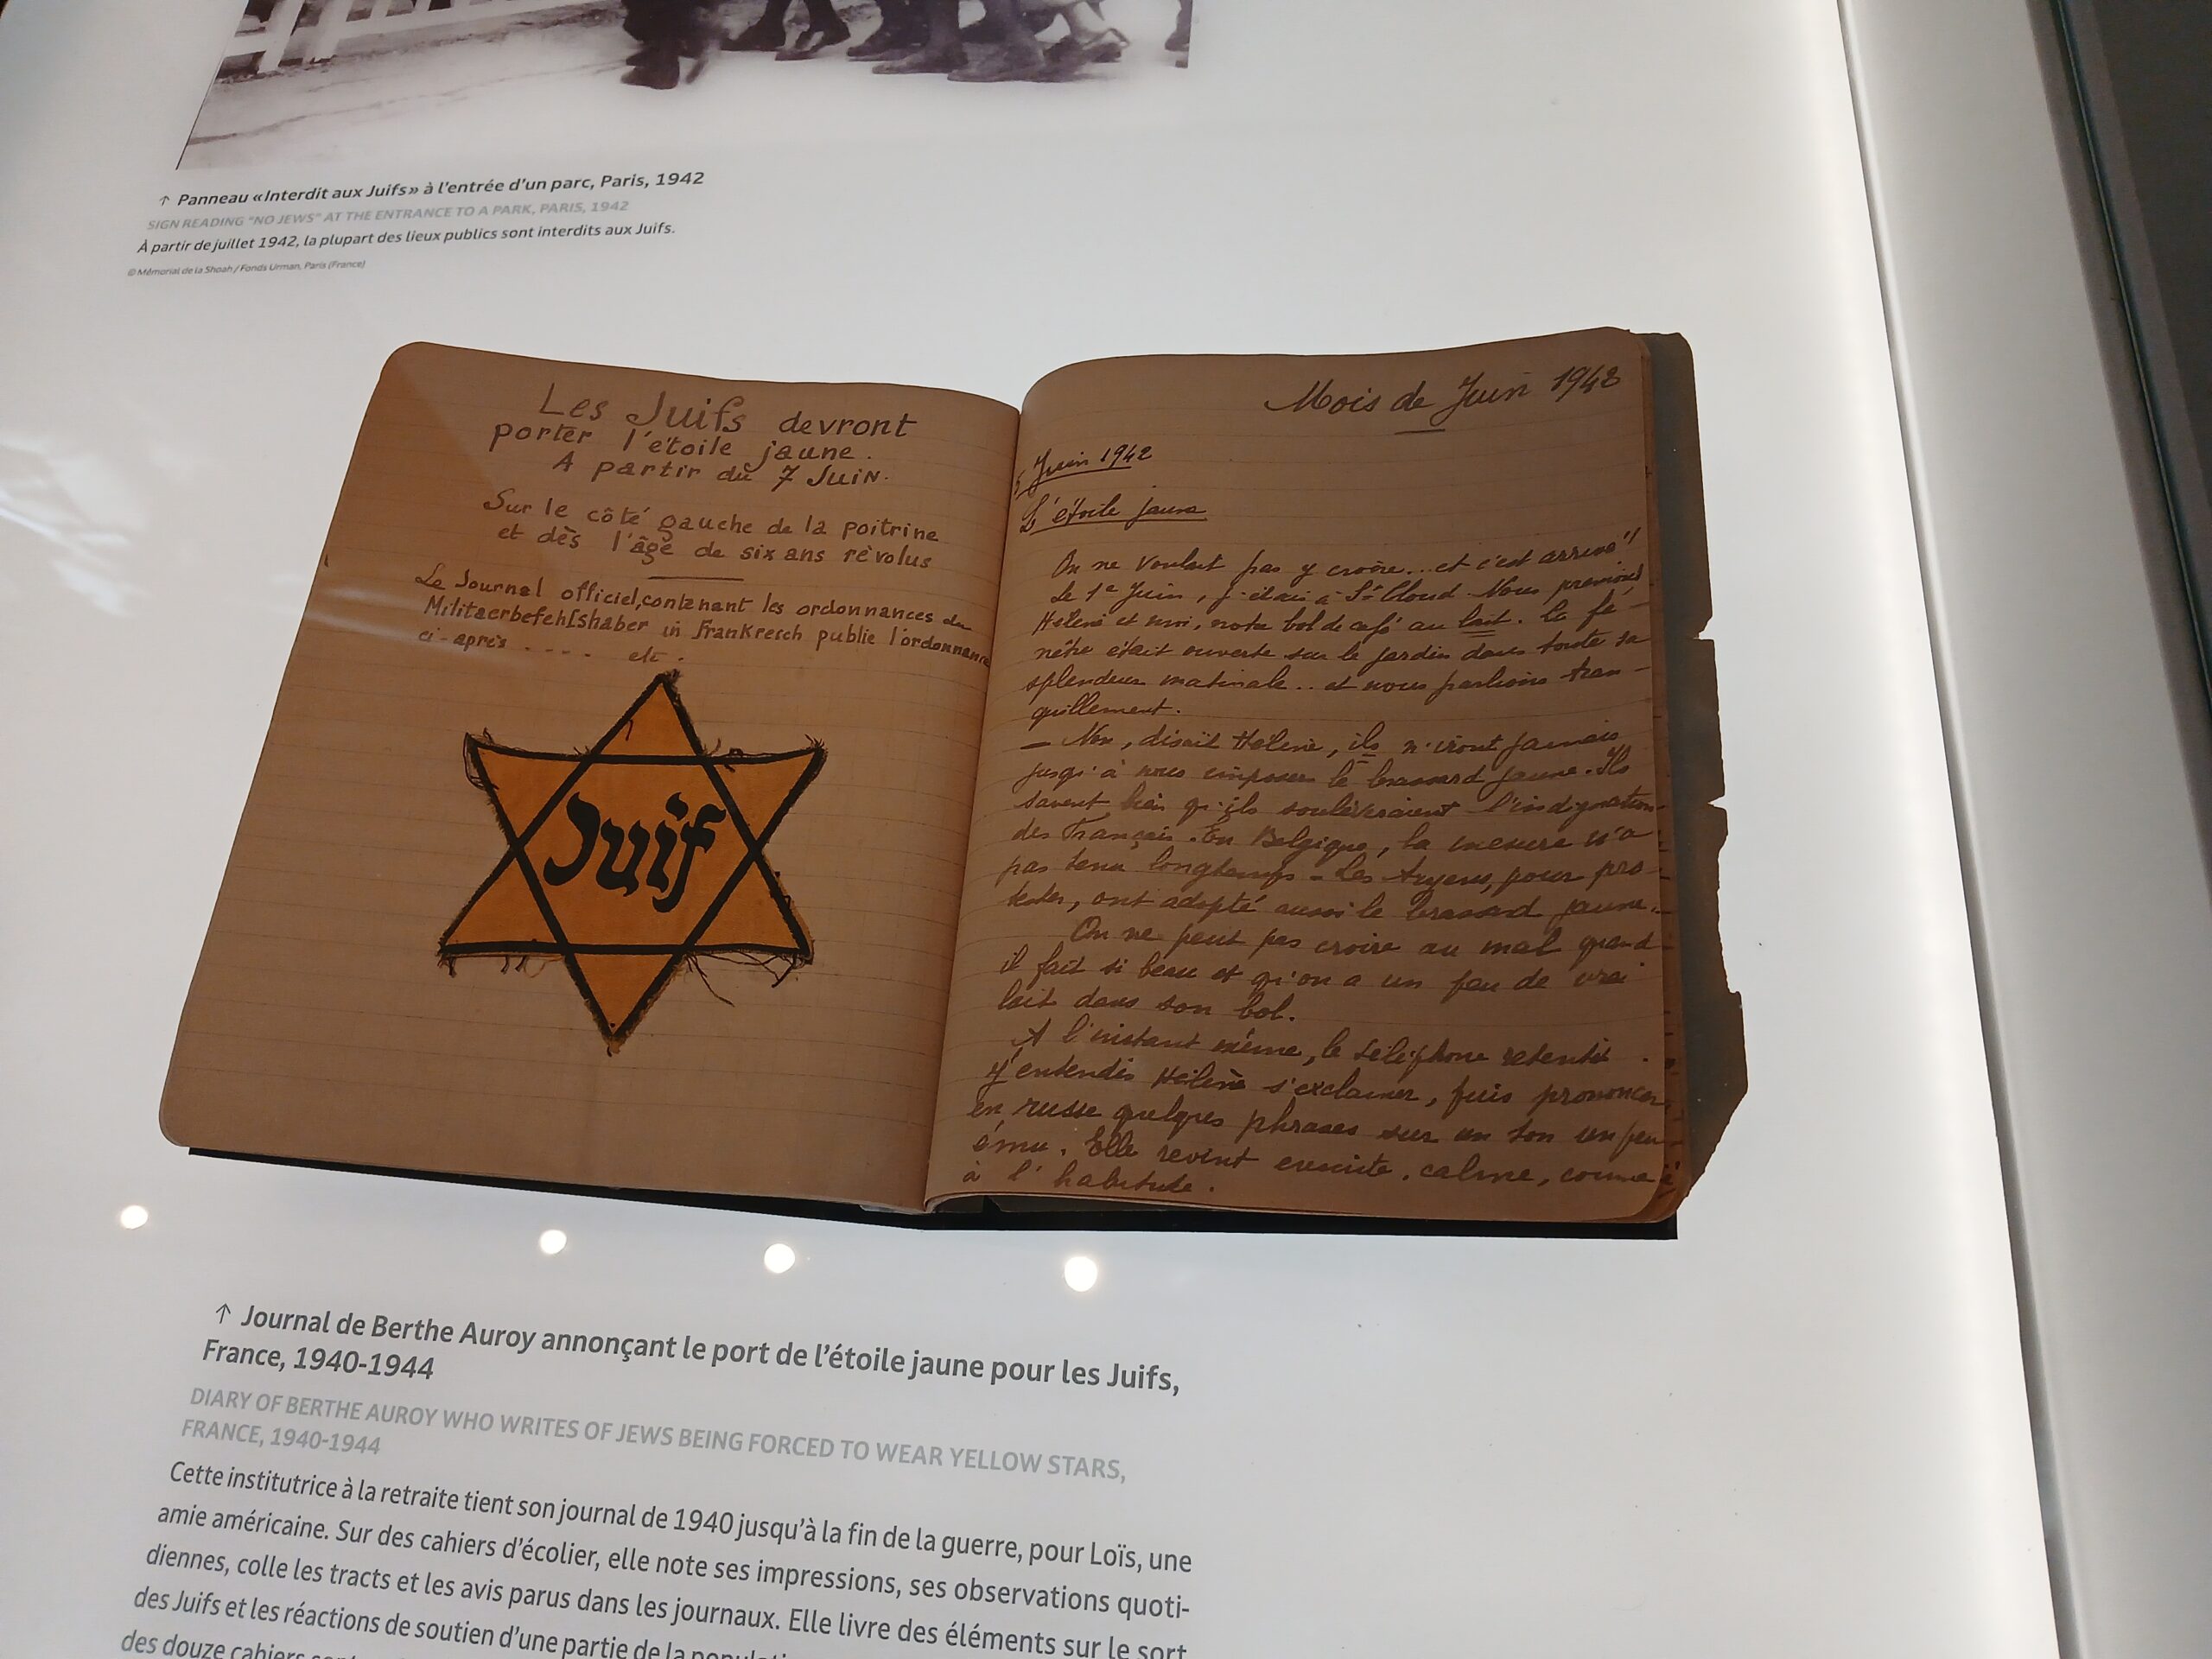 ↑ Panneau «Interdit aux Juifs» à l'entrée d'un parc, Paris, 1942
SIGN READING "NO JEWS" AT THE ENTRANCE TO A PARK, PARIS, 1942
À partir de juillet 1942, la plupart des lieux publics sont interdits aux Juifs.
© Mémorial de la Shoah / Fonds Urman, Paris (France)
Les Juifs devront
porter l'étoile jaune.
A partir du 7 Juin.
Sur le côté gauche de la poitrine
et dès l'âge de six ans révolus
Le Journal officiel, contenant les ordonnances du
Militaerbefehlshaber in Frankreich publie l'ordonnance
ci-après . . . . etc.
Juif
Mois de Juin 1942
Juin 1942
L'étoile jaune
On ne voulait pas y croire... et c'est arrivé!!
Le 1er Juin, j'étais à St Cloud. Nous prenions,
Hélène et moi, notre bol de café au lait. La fe-
nêtre était ouverte sur le jardin dans toute sa
splendeur matinale.. et nous parlions tran-
quillement.
— Non, disait Hélène, ils n'iront jamais
jusqu'à nous imposer le brassard jaune. Ils
savent bien qu'ils soulèveraient l'indignation
des Français. En Belgique, la mesure n'a
pas tenu longtemps - Les Aryens, pour pro-
tester, ont adopté aussi le brassard jaune.
On ne peut pas croire au mal quand
il fait si beau et qu'on a un peu de vrai
lait dans son bol.
A l'instant même, le téléphone retentit.
J'entendis Hélène s'exclamer, puis prononcer
en russe quelques phrases sur un ton un peu
ému. Elle revint ensuite, calme, comme
à l'habitude.
↑ Journal de Berthe Auroy annonçant le port de l'étoile jaune pour les Juifs,
France, 1940-1944
DIARY OF BERTHE AUROY WHO WRITES OF JEWS BEING FORCED TO WEAR YELLOW STARS,
FRANCE, 1940-1944
Cette institutrice à la retraite tient son journal de 1940 jusqu'à la fin de la guerre, pour Loïs, une
amie américaine. Sur des cahiers d'écolier, elle note ses impressions, ses observations quoti-
diennes, colle les tracts et les avis parus dans les journaux. Elle livre des éléments sur le sort
des Juifs et les réactions de soutien d'une partie de la
des douze cahiers